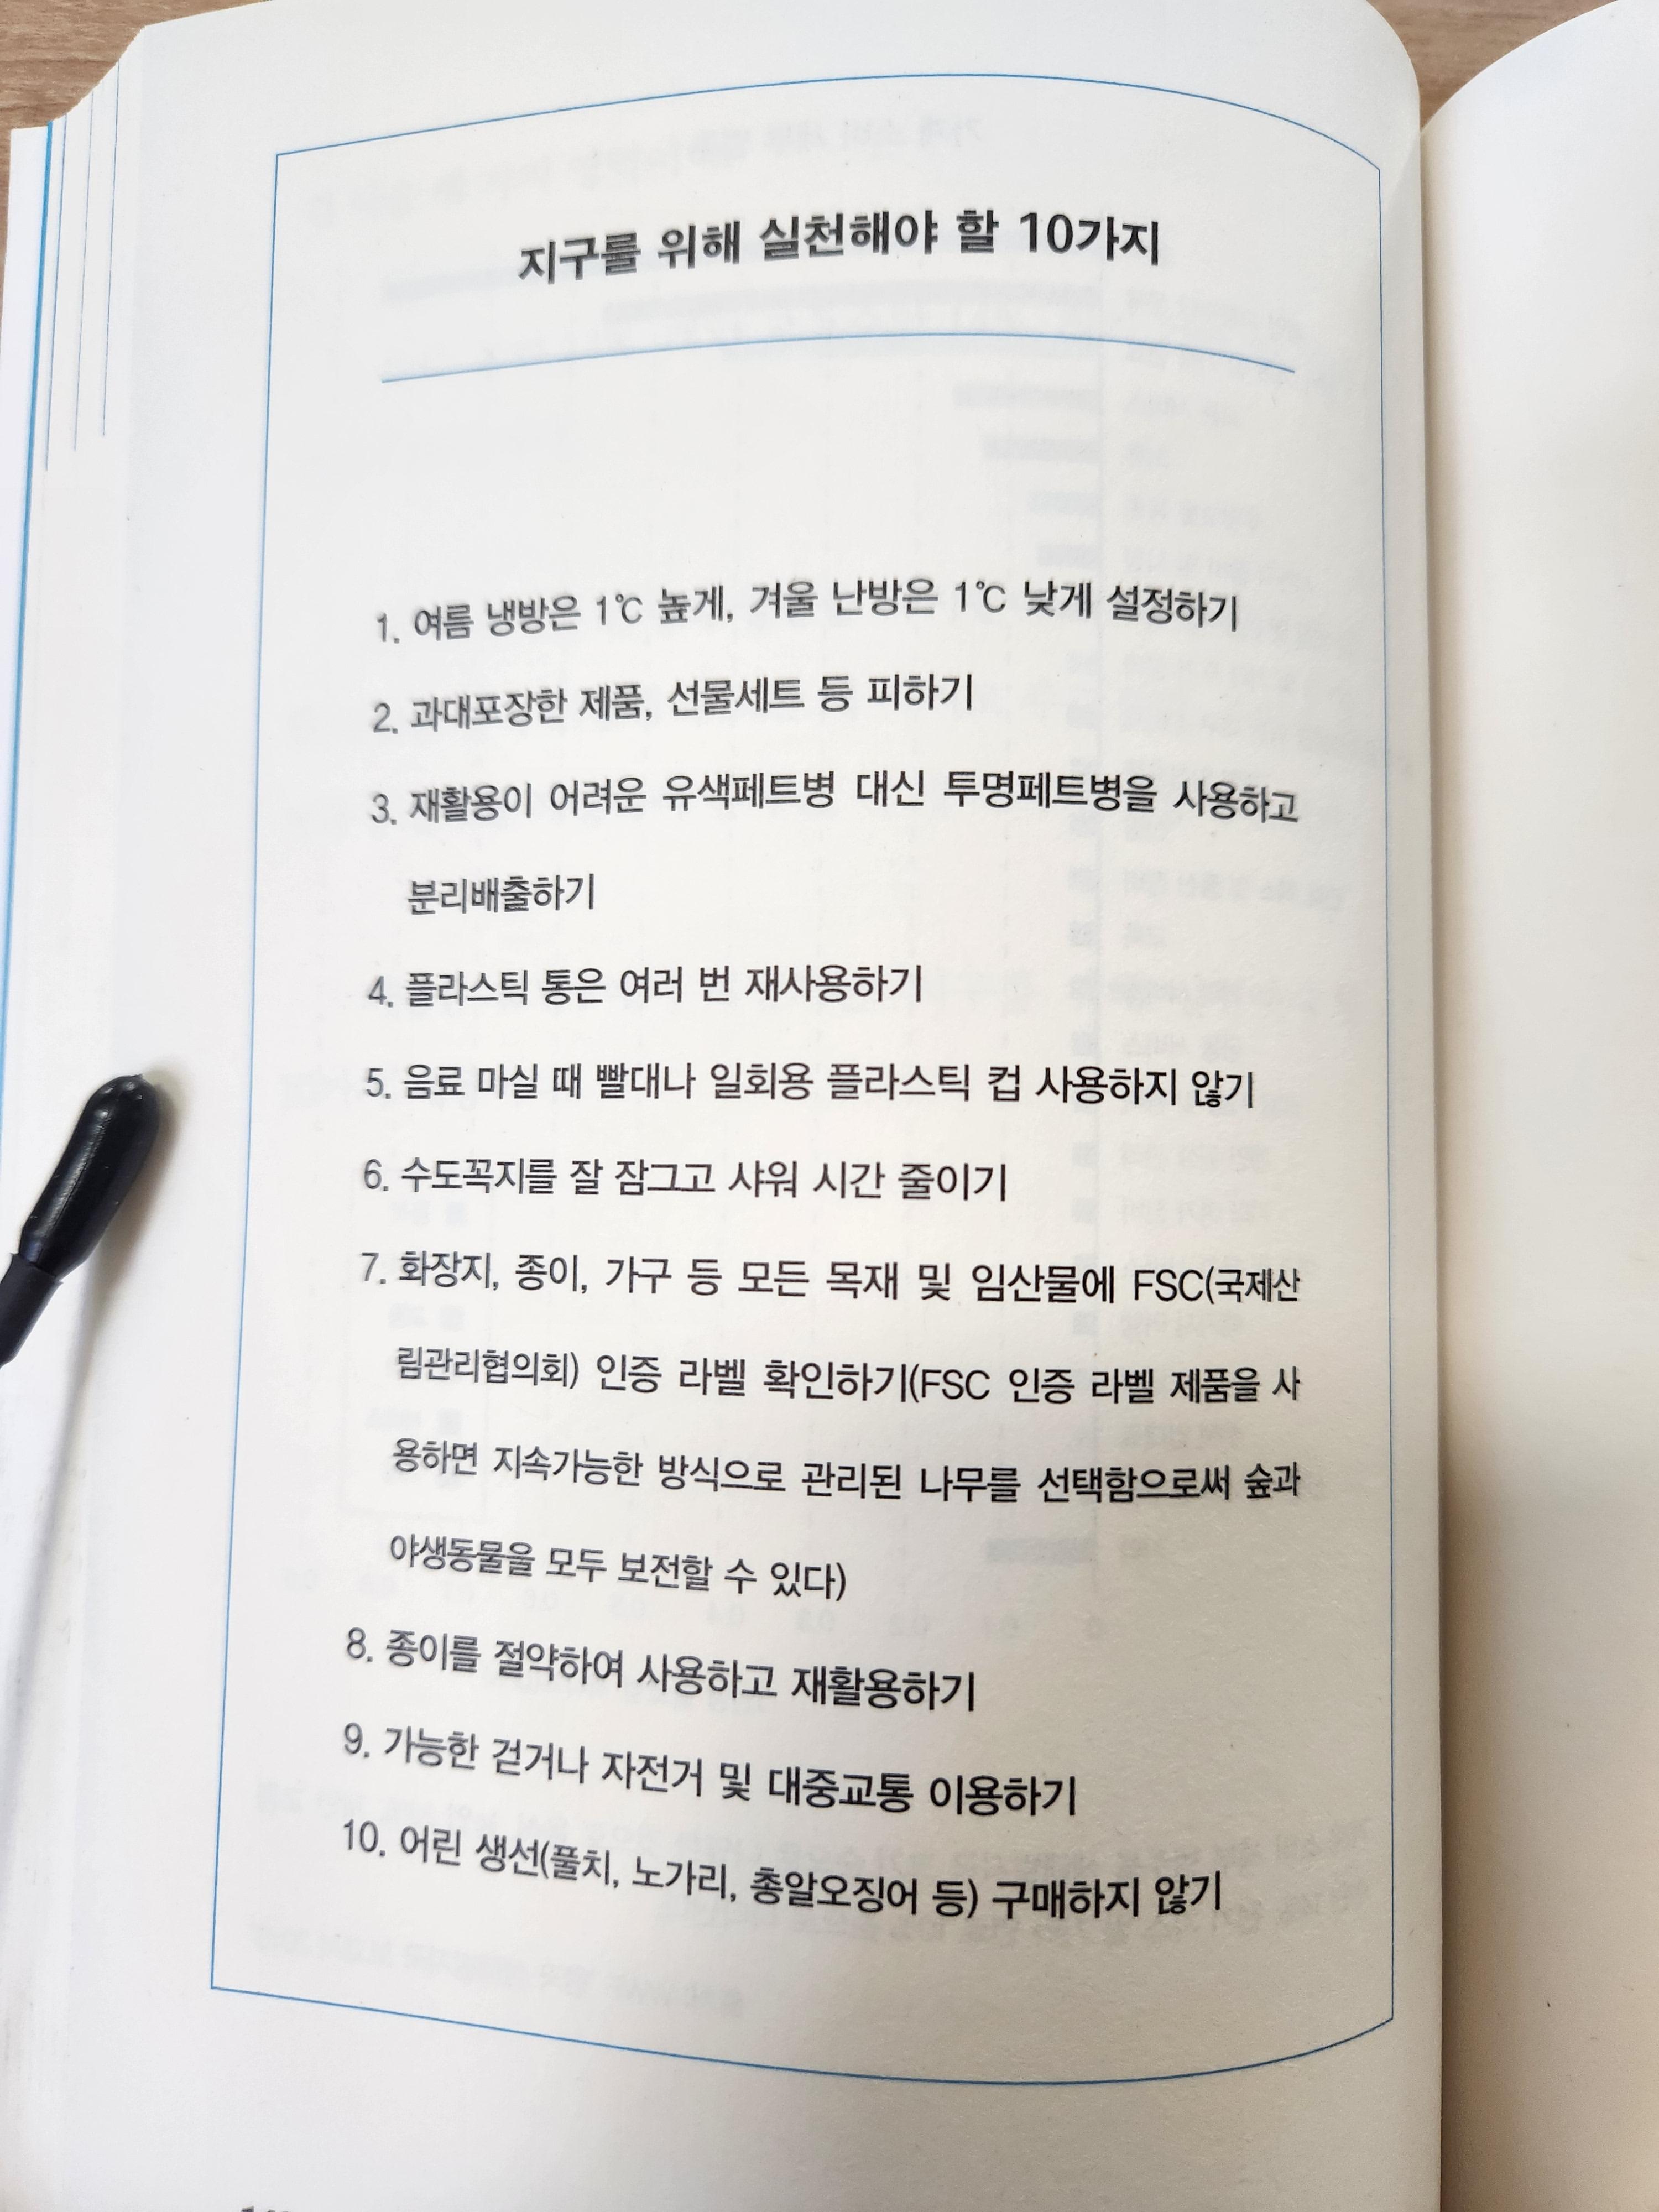 지구를 위해 실천해야 할 10가지
1. 여름 냉방은 1℃ 높게, 겨울 난방은 1℃ 낮게 설정하기
2. 과대포장한 제품, 선물세트 등 피하기
3. 재활용이 어려운 유색페트병 대신 투명페트병을 사용하고
분리배출하기
4. 플라스틱 통은 여러 번 재사용하기
5. 음료 마실 때 빨대나 일회용 플라스틱 컵 사용하지 않기
6. 수도꼭지를 잘 잠그고 샤워 시간 줄이기
7. 화장지, 종이, 가구 등 모든 목재 및 임산물에 FSC(국제산
림관리협의회) 인증 라벨 확인하기(FSC 인증 라벨 제품을 사
용하면 지속가능한 방식으로 관리된 나무를 선택함으로써 숲과
야생동물을 모두 보전할 수 있다)
8. 종이를 절약하여 사용하고 재활용하기
9. 가능한 걷거나 자전거 및 대중교통 이용하기
10. 어린 생선(풀치, 노가리, 총알오징어 등) 구매하지 않기